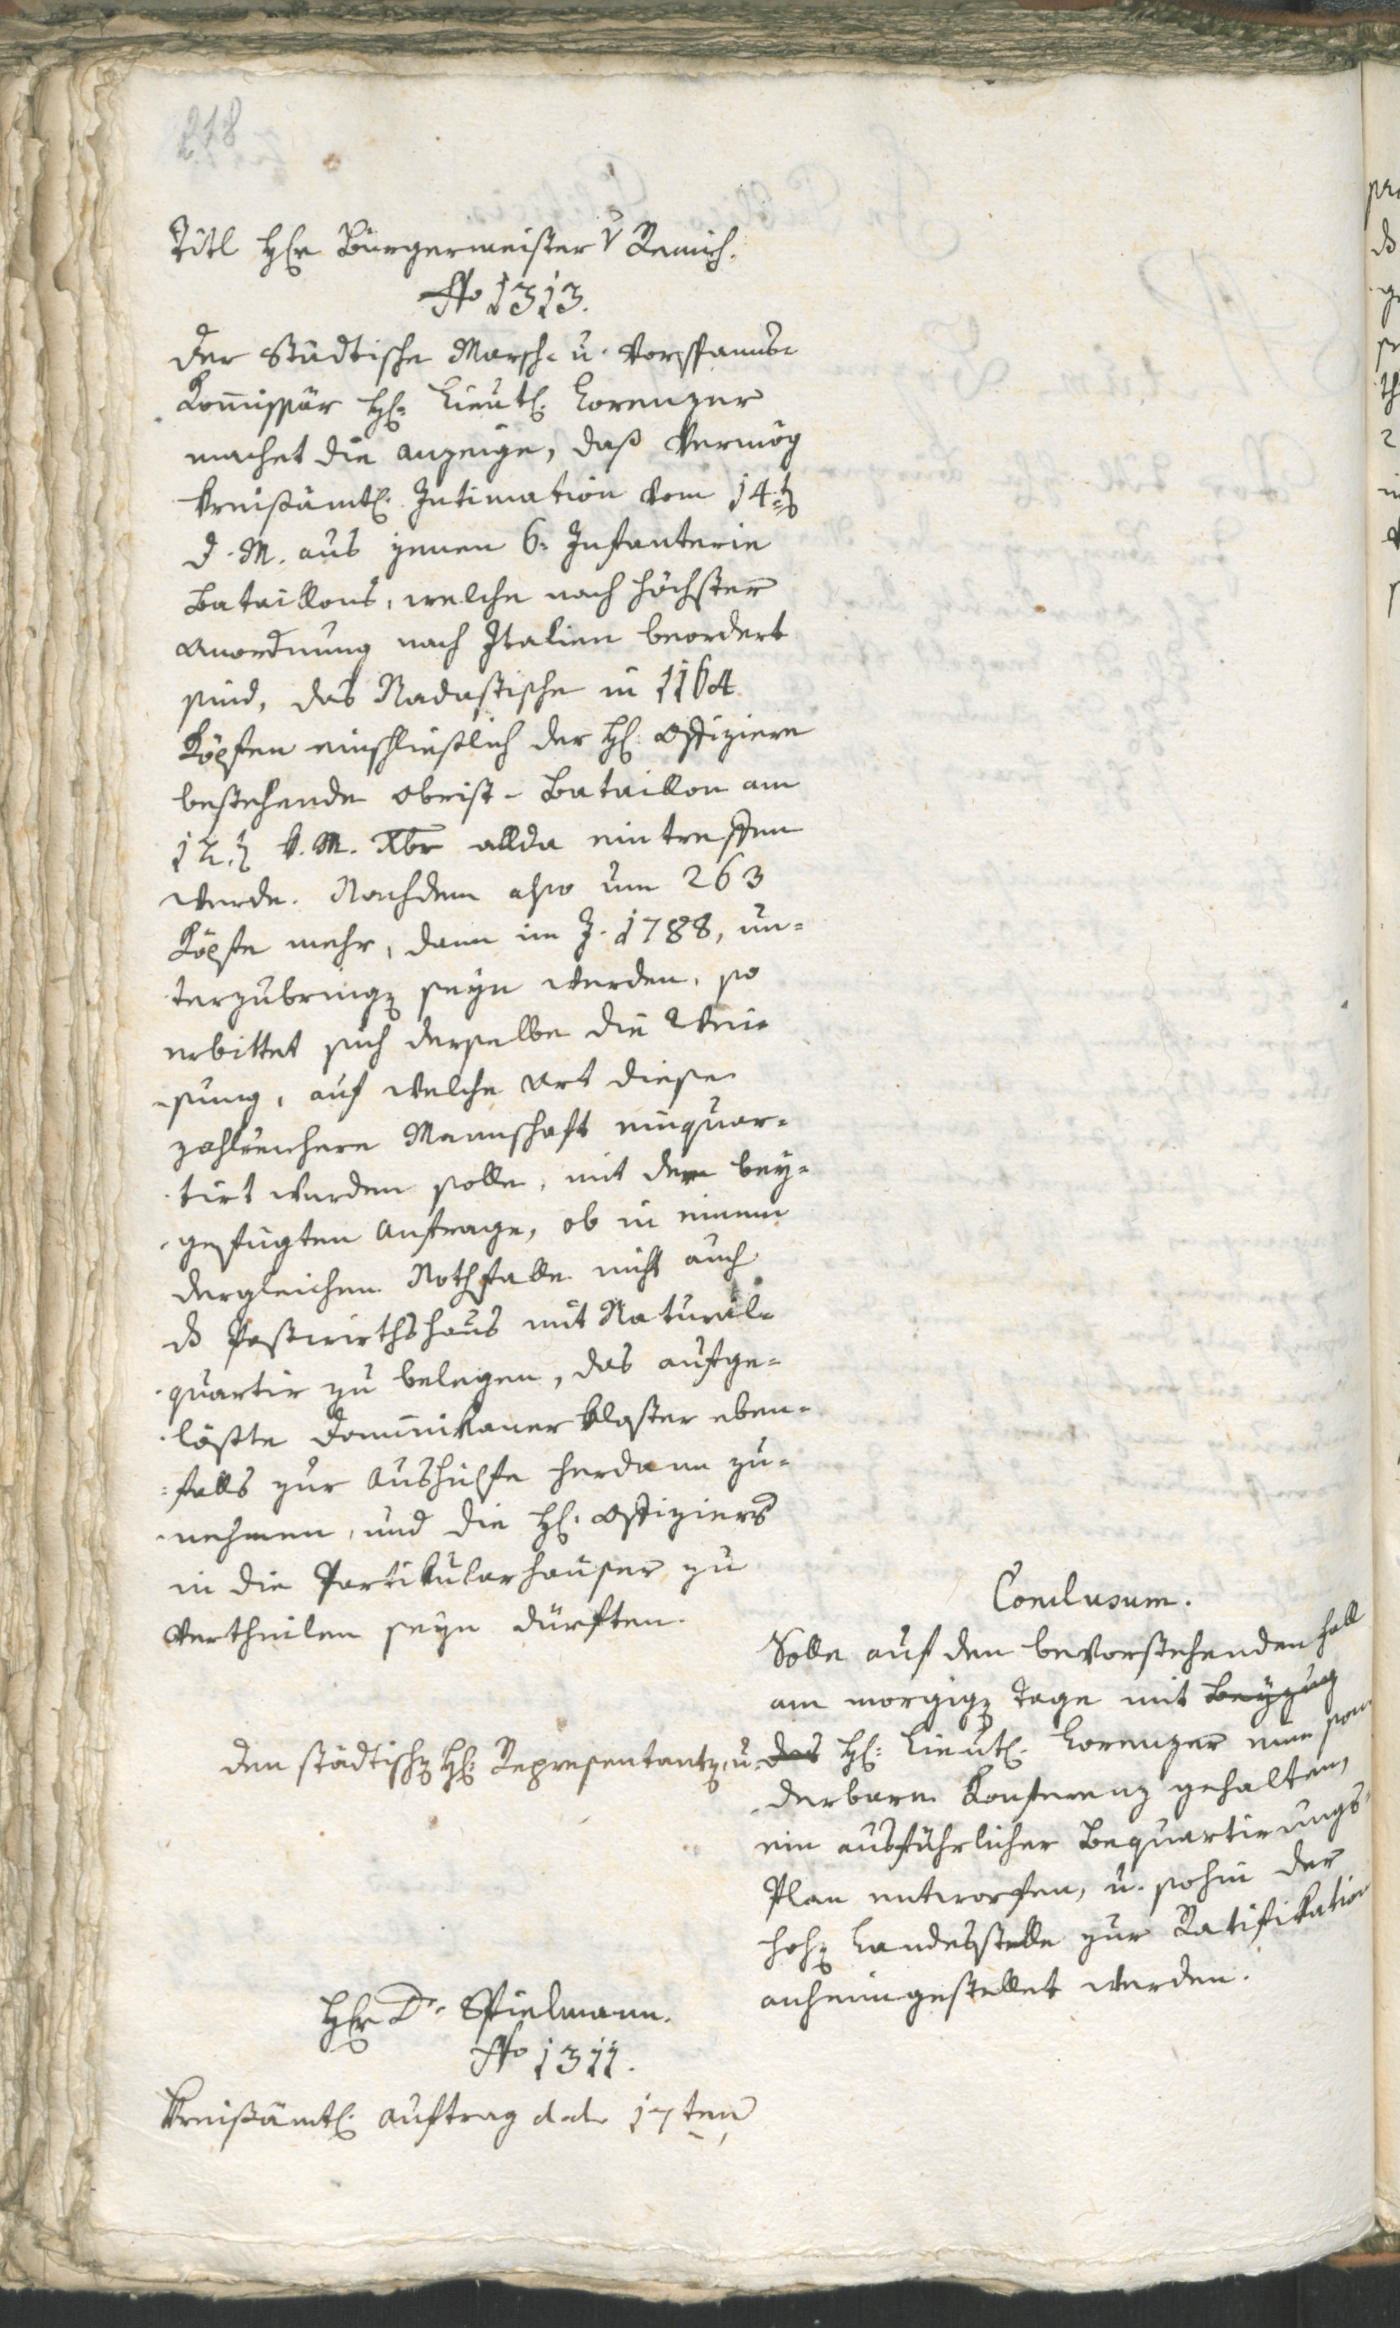 218
Titl Hr Bürgermeister v Remich.
No 1313.
Der Städtische Marsch- u. Vorspanns-
Kommissär H: Lieut. Lorenzer
machet die anzeige, daß vermög
kreisämtl. Intimation vom 14t
d. M. aus jenen 6. Infanterie
Bataillons, welche nach höchster
Anordnung nach Italien beordert
sind, das Nadastische in 1164
Köpfen einschließlich der H. Offiziere
bestehende Obrist-Bataillon am
12.t k. M. Xbr allda eintreffen
werde. Nachdem also um 263
Köpfe mehr, dann im J. 1788, un-
terzubringen seyn werden, so
erbittet sich derselbe die Wei-
sung, auf welche Art diese
zahlreichere Mannschaft einquar-
tirt werden solle, mit der bey-
gefügten Anfrage, ob in einem
dergleichen Nothfalle nicht auch
ds Postwirthshaus mit Natural-
quartir zu belegen, das aufge-
lößte Dominikanerkloster eben-
falls zur Aushilfe herdann zu-
nehmen, und die H. Offiziers
in die Partikularhäuser zu
vertheilen seyn dürften.
Conclusum.
Solle auf den bevorstehenden Fall
am morgigen Tage mit Beyzug
den städtischen H: Representanten, u. des H: Lieut. Lorenzer eine son-
derbare Konferenz gehalten,
ein ausführlicher Bequartirungs-
Plan entworfen, u. sohin der
hohen Landesstelle zur Ratifikation
anheimgestellet werden.
Hr Dr. Spielmann.
No 1311.
Kreisämtl. Auftrag d. d. 17ten